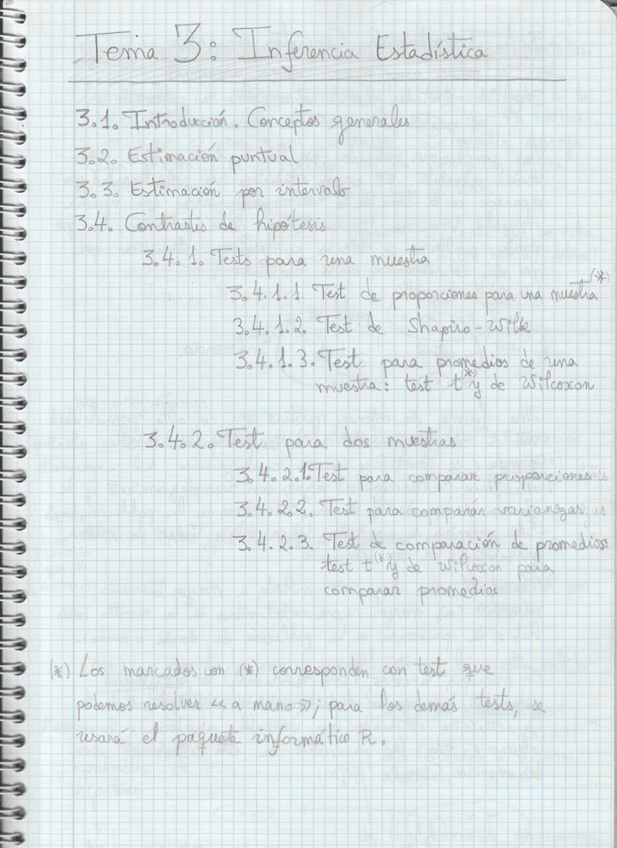 Tema 3: Inferencia Estadística
3.1. Introducción. Conceptos generales
3.2. Estimación puntual
3.3. Estimación por intervalo
3.4. Contrastes de hipótesis
3.4.1. Tests para una muestra
3.4.1.1. Test de proporciones para una muestra (*)
3.4.1.2. Test de Shapiro-Wilk
3.4.1.3. Test para promedios de una
muestra: test t(*) y de Wilcoxon
3.4.2. Test para dos muestras
3.4.2.1. Test para comparar proporciones
3.4.2.2. Test para comparar varianzas
3.4.2.3. Test de comparación de promedios
test t(*) y de Wilcoxon para
comparar promedios
(*) Los marcados con (*) corresponden con test que
podemos resolver «a mano»; para los demás tests, se
usará el paquete informático R.